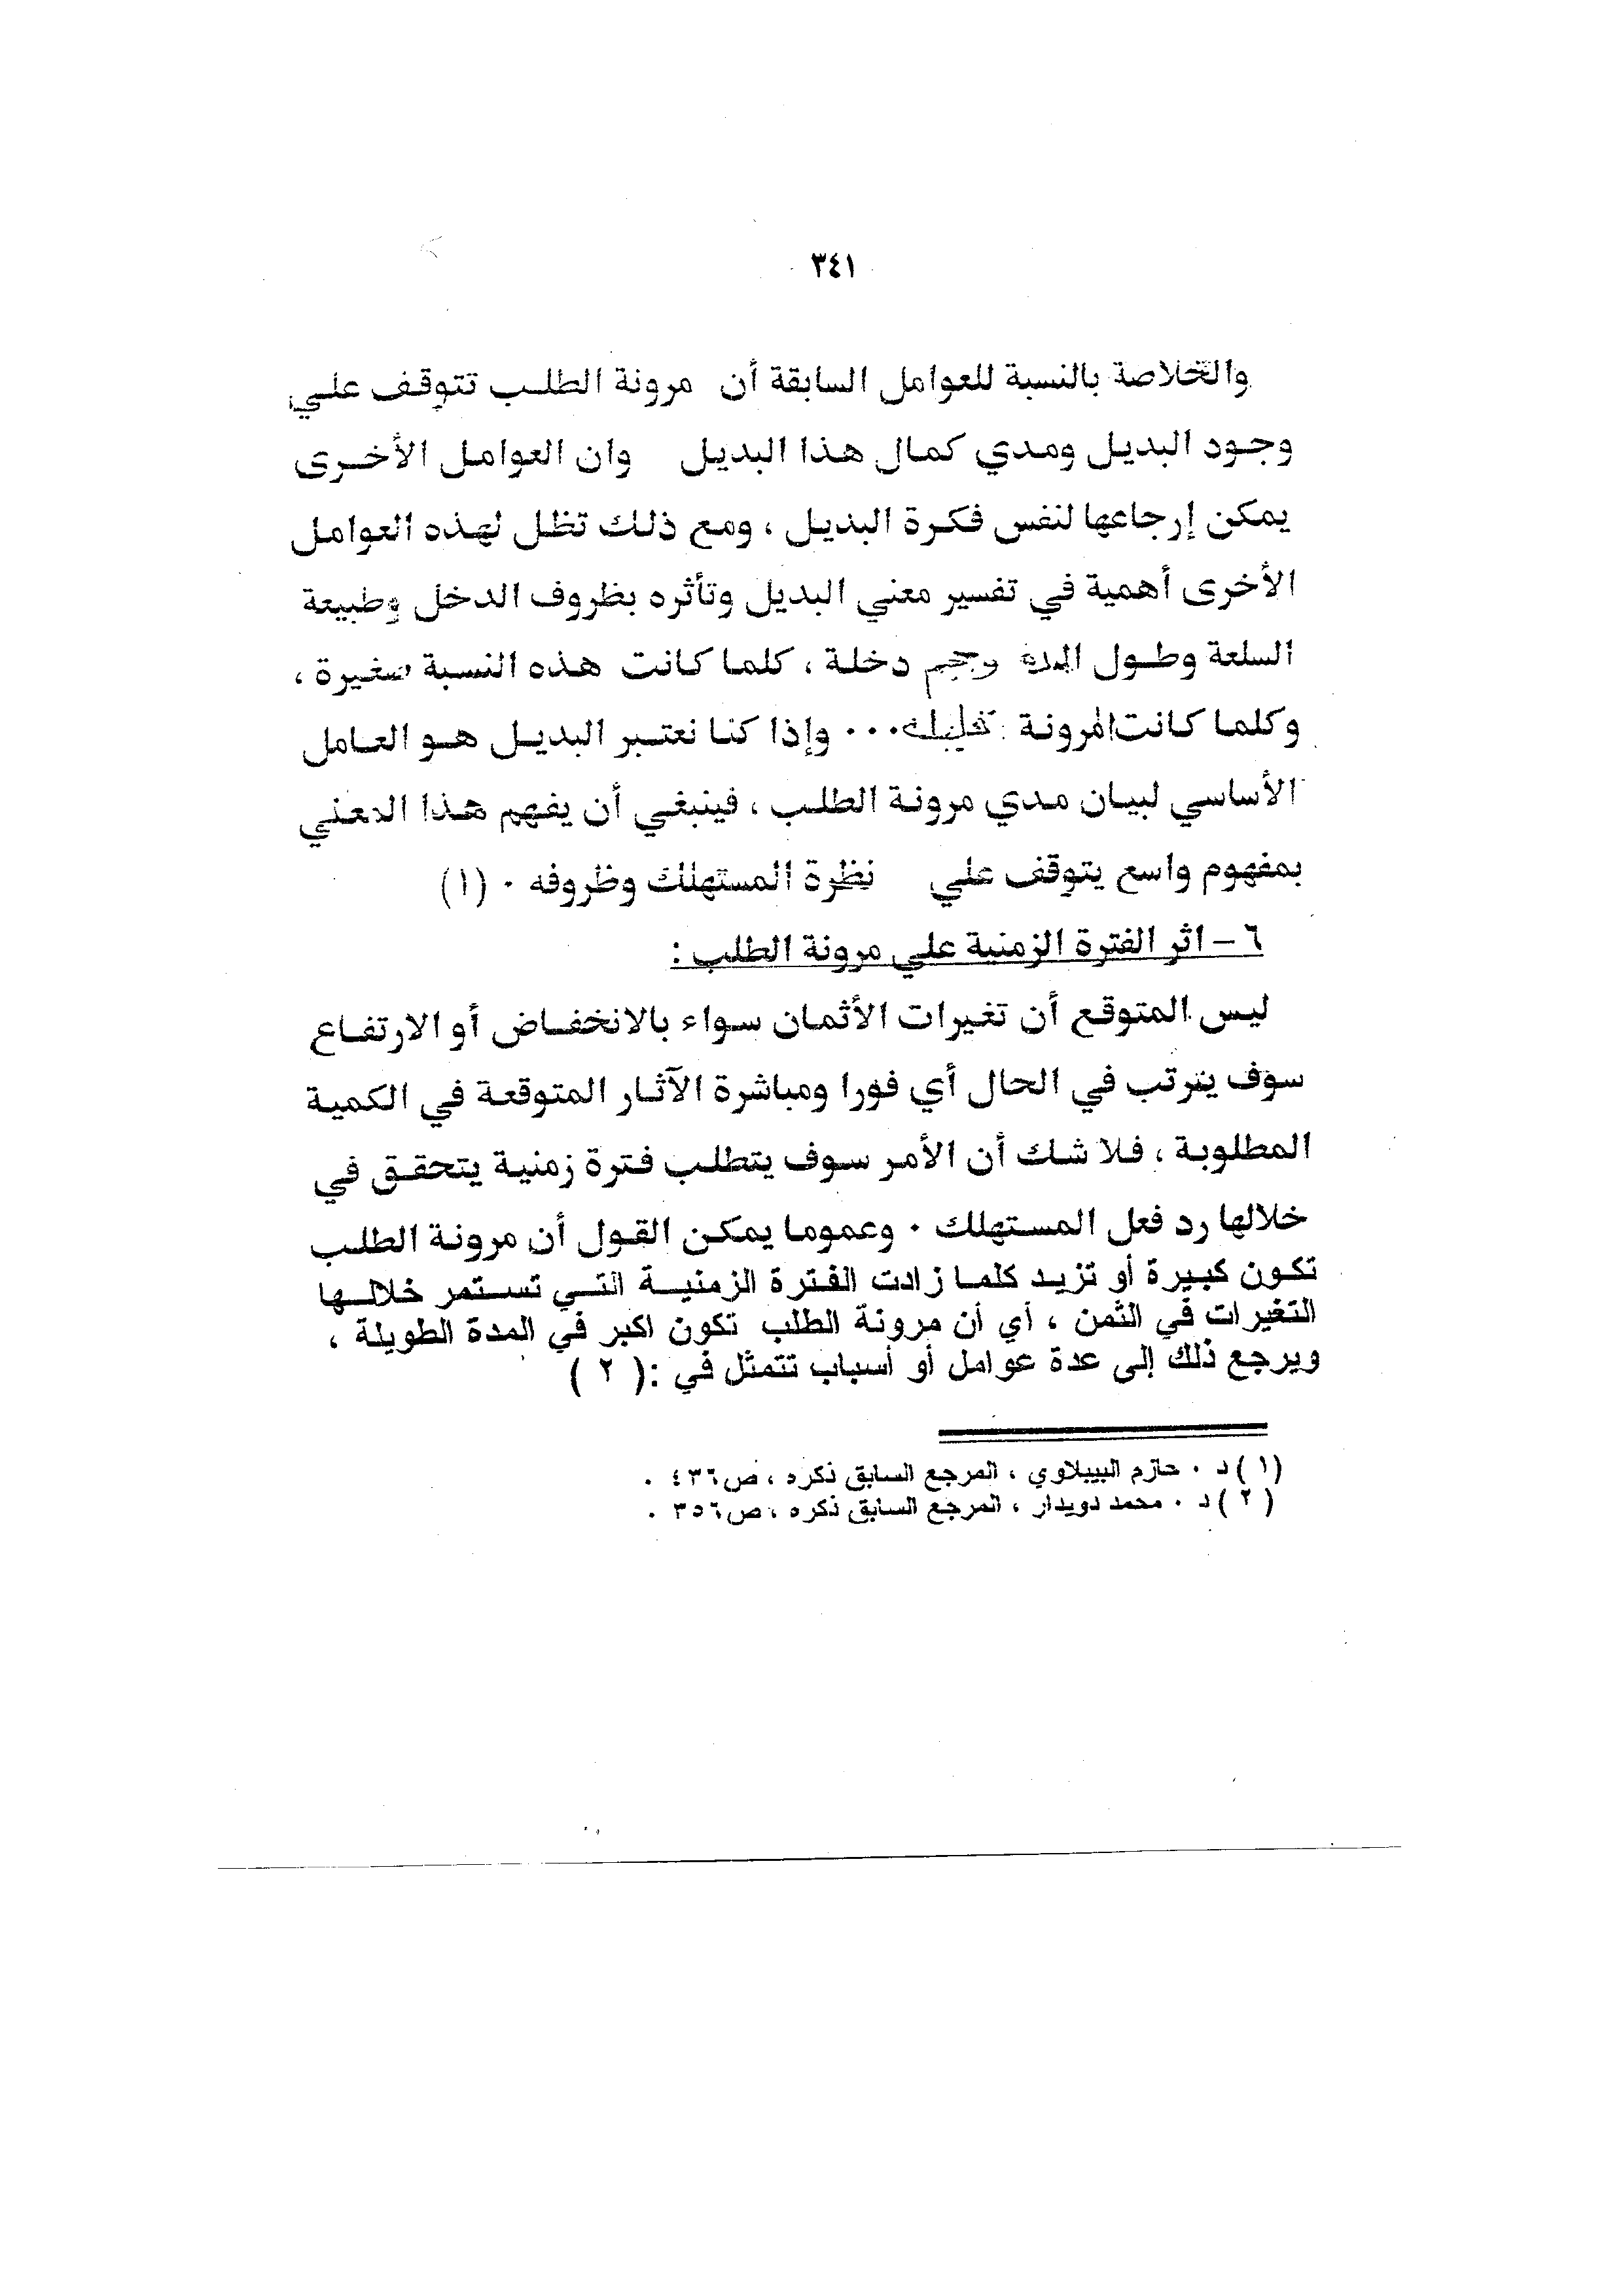 ٣٤١
والخلاصة بالنسبة للعوامل السابقة أن مرونة الطلب تتوقف علي
وجود البديل ومدي كمال هذا البديل وان العوامل الأخرى
يمكن إرجاعها لنفس فكرة البديل ، ومع ذلك تظل لهذه العوامل
الأخرى أهمية في تفسير معني البديل وتأثره بظروف الدخل وطبيعة
السلعة وطول المدة وحجم دخلة ، كلما كانت هذه النسبة صغيرة ،
وكلما كانت المرونة ٠٠٠ وإذا كنا نعتبر البديل هو العامل
الأساسي لبيان مدي مرونة الطلب ، فينبغي أن يفهم هذا المعني
بمفهوم واسع يتوقف علي نظرة المستهلك وظروفه ٠ (١)
٦- اثر الفترة الزمنية علي مرونة الطلب :
ليس المتوقع أن تغيرات الأثمان سواء بالانخفاض أو الارتفاع
سوف يترتب في الحال أي فورا ومباشرة الآثار المتوقعة في الكمية
المطلوبة ، فلا شك أن الأمر سوف يتطلب فترة زمنية يتحقق في
خلالها رد فعل المستهلك ٠ وعموما يمكن القول أن مرونة الطلب
تكون كبيرة أو تزيد كلما زادت الفترة الزمنية التي تستمر خلالها
التغيرات في الثمن ، أي أن مرونة الطلب تكون اكبر في المدة الطويلة ،
ويرجع ذلك إلى عدة عوامل أو أسباب تتمثل في :( ٢ )
(١) د ٠ حازم الببلاوي ، المرجع السابق ذكره ، ص٤٣٦ ٠
( ٢ ) د ٠ محمد دويدار ، المرجع السابق ذكره ، ص٣٥٦ ٠